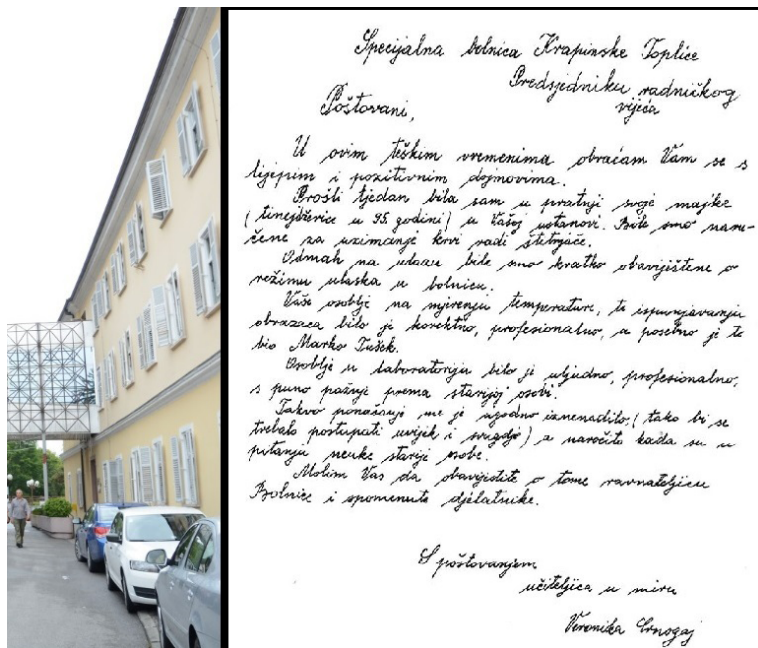 Specijalna bolnica Krapinske Toplice
Predsjedniku radničkog
vijeća
Poštovani,
U ovim teškim vremenima obraćam Vam se s
lijepim i pozitivnim dojmovima.
Prošli tjedan bila sam u pratnji svoje majke
(tinejžerice u 95. godini) u Vašoj ustanovi. Bile smo naru-
čene za uzimanje krvi radi štitnjače.
Odmah na ulazu bile smo kratko obaviještene o
režimu ulaska u bolnicu.
Vaše osoblje na mjerenju temperature, te ispunjavanju
obrazaca bilo je korektno, profesionalno, a posebno je to
bio Marko Tušek.
Osoblje u laboratoriju bilo je uljudno, profesionalno,
s puno pažnje prema starijoj osobi.
Takvo ponašanje me je ugodno iznenadilo, (tako bi se
trebalo postupati uvijek i svugdje) a naročito kada su u
pitanju neuke starije osobe.
Molim Vas da obavijestite o tome ravnateljicu
Bolnice i spomenute djelatnike.
S poštovanjem
učiteljica u miru
Veronika Crnogaj